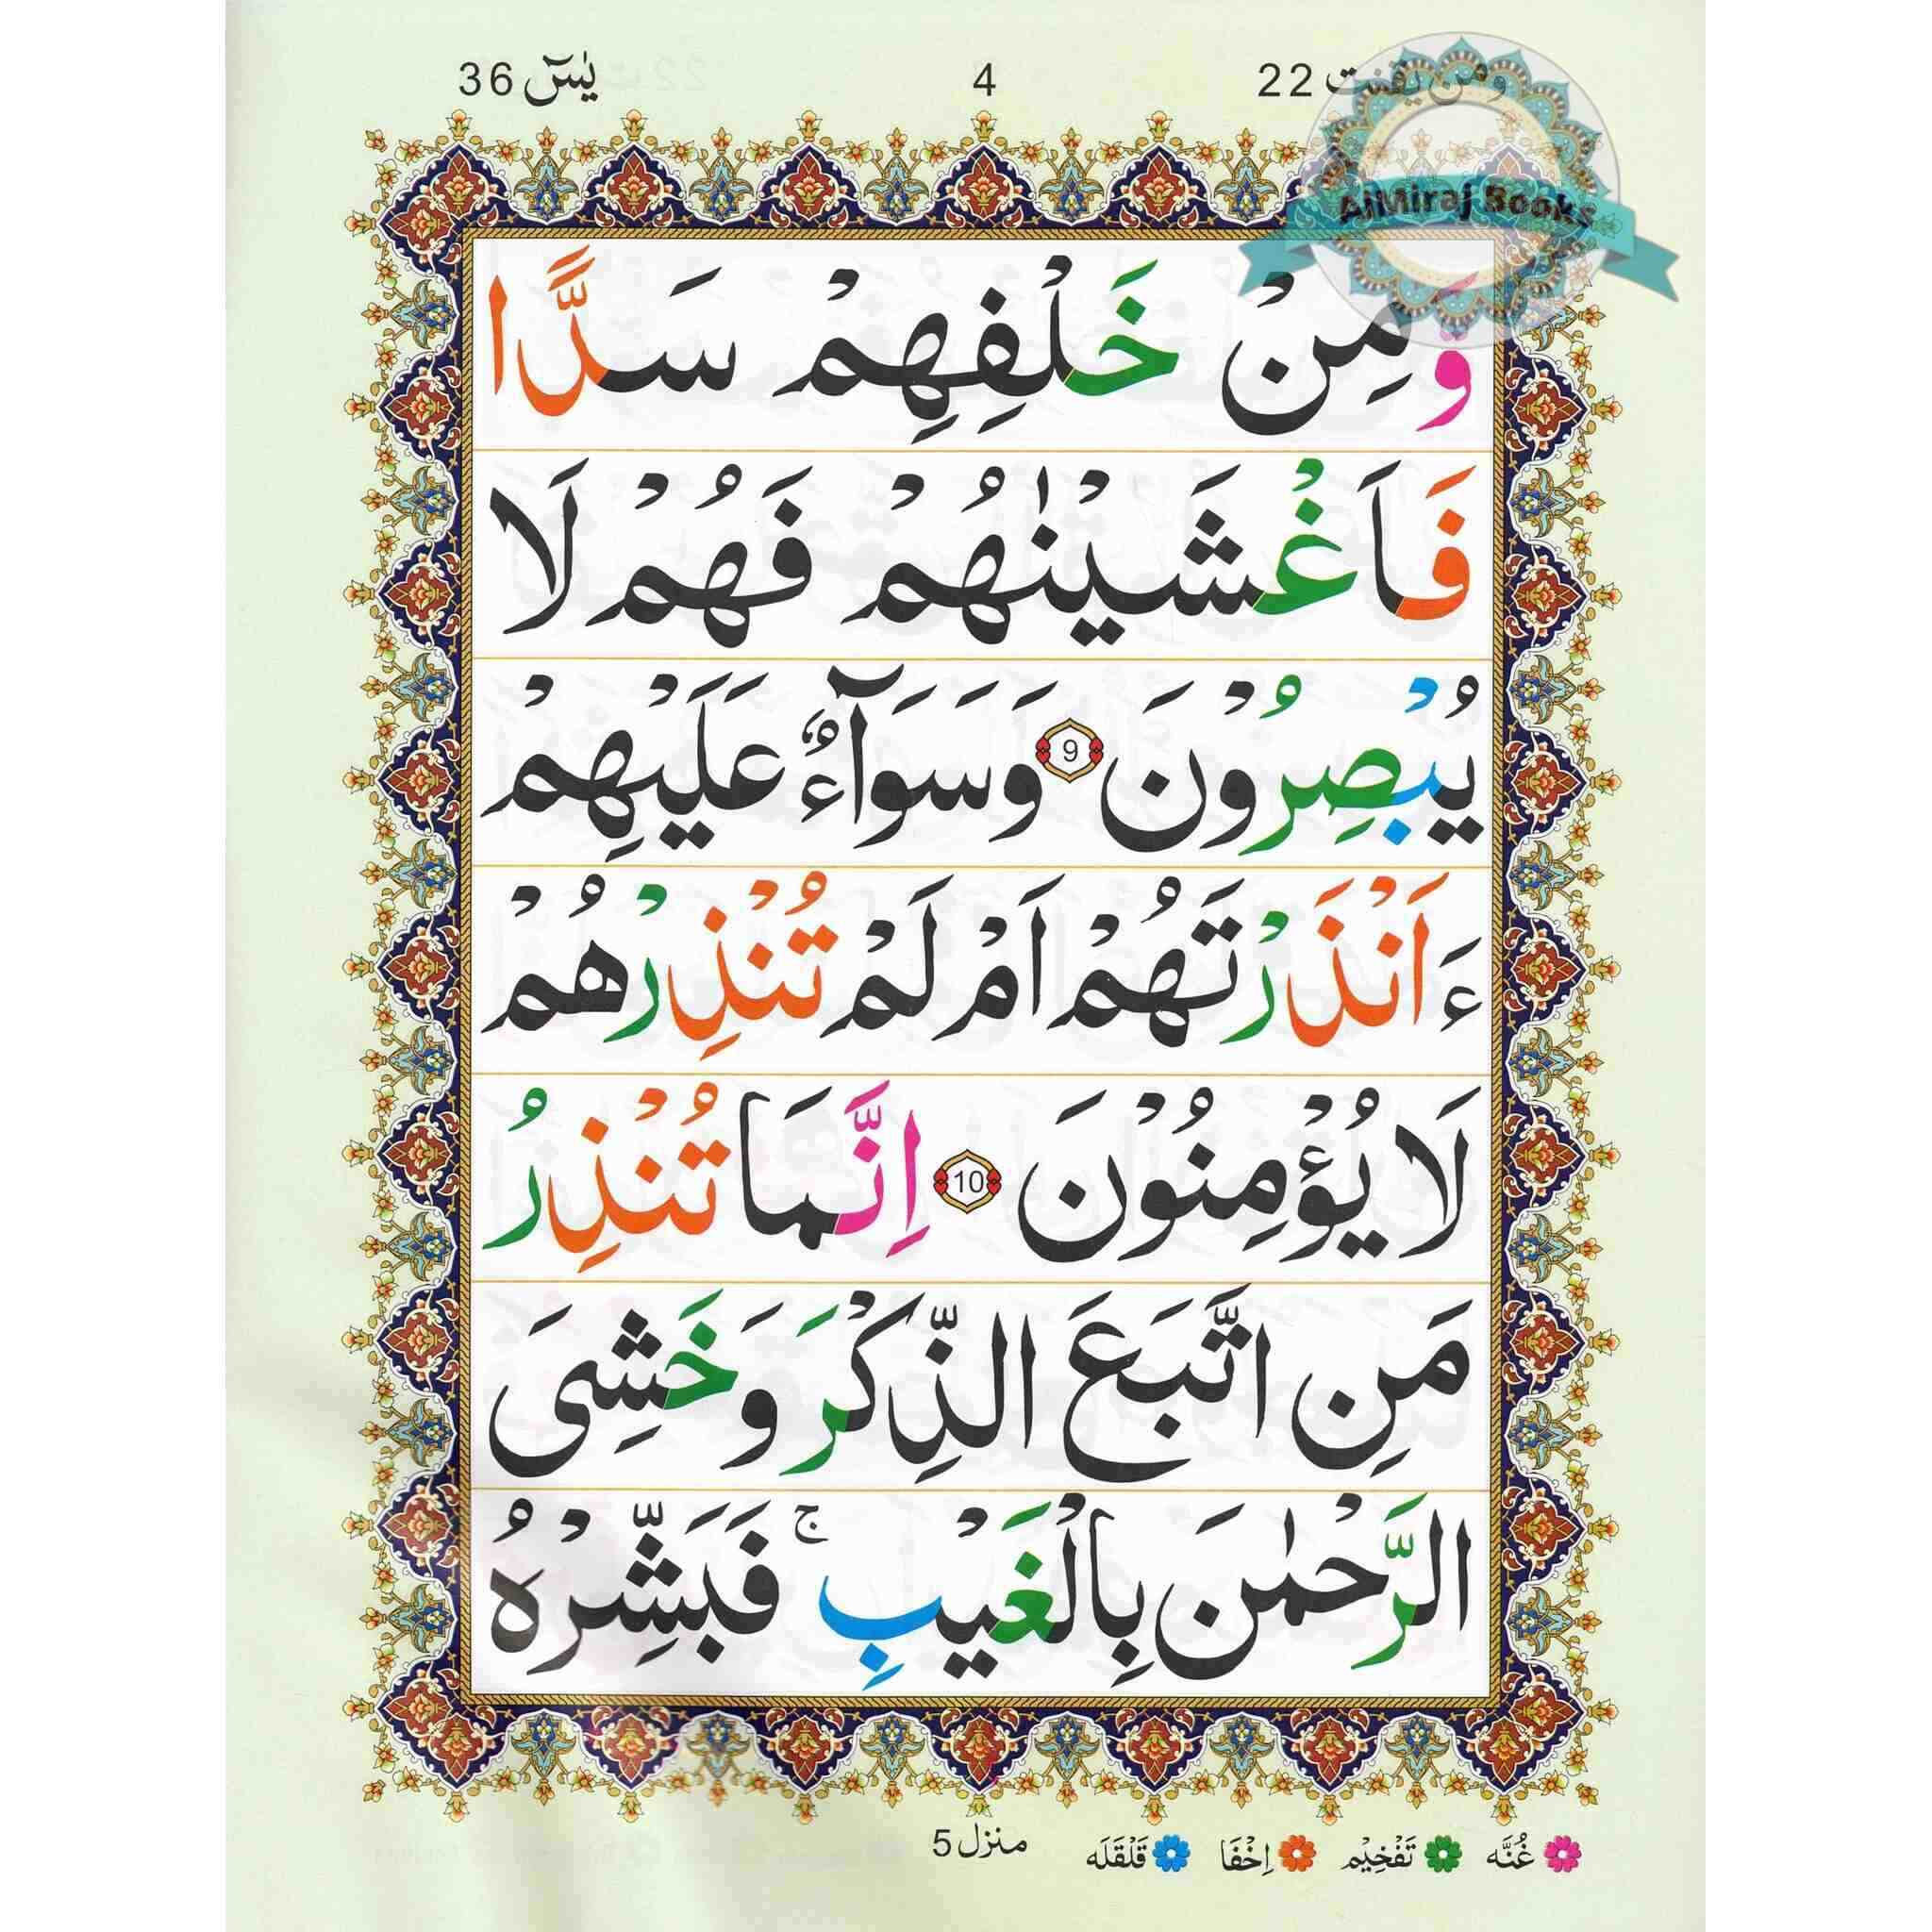 ومن یقنت 22
4
یٰسٓ 36
AlMiraj Books
وَّمِنْ خَلْفِهِمْ سَدًّا
فَاَغْشَیْنٰهُمْ فَهُمْ لَا
یُبْصِرُوْنَ 9 وَسَوَآءٌ عَلَیْهِمْ
ءَاَنْذَرْتَهُمْ اَمْ لَمْ تُنْذِرْهُمْ
لَا یُؤْمِنُوْنَ 10 اِنَّمَا تُنْذِرُ
مَنِ اتَّبَعَ الذِّكْرَ وَخَشِیَ
الرَّحْمٰنَ بِالْغَیْبِ ۚ فَبَشِّرْهُ
منزل 5
غُنَّه
تَفْخِیْم
اِخْفَا
قَلْقَلَه